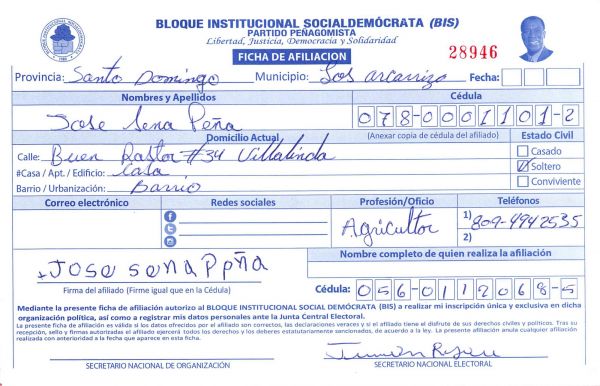 BLOQUE INSTITUCIONAL SOCIALDEMÓCRATA (BIS)
PARTIDO PEÑAGOMISTA
Libertad, Justicia, Democracia y Solidaridad
FICHA DE AFILIACION
28946
Provincia: Santo Domingo Municipio: Los arcarrizo Fecha:
Nombres y Apellidos
Cédula
Jose Sena Peña
078-0001101-2
Domicilio Actual
(Anexar copia de cédula del afiliado)
Estado Civil
Calle: Buen Pastor #34 Villalinda
Casado
#Casa / Apt. / Edificio: Casa
Soltero
Barrio / Urbanización: Barrio
Conviviente
Correo electrónico
Redes sociales
Profesión/Oficio
Teléfonos
Agricultor
1) 809-4942535
2)
Nombre completo de quien realiza la afiliación
Jose sena Ppña
Firma del afiliado (Firme igual que en la Cédula)
Cédula: 056-0112068-5
Mediante la presente ficha de afiliación autorizo al BLOQUE INSTITUCIONAL SOCIAL DEMÓCRATA (BIS) a realizar mi inscripción única y exclusiva en dicha
organización política, así como a registrar mis datos personales ante la Junta Central Electoral.
La presente ficha de afiliación es válida si los datos ofrecidos por el afiliado son correctos, las declaraciones veraces y si el afiliado tiene el disfrute de sus derechos civiles y políticos. Tras su
recepción, sello y firmas autorizadas el afiliado ejercerá todos los derechos y los deberes estatutariamente sancionados, de acuerdo a la ley. La presente afiliación anula cualquier afiliación
realizada con anterioridad a la fecha que aparece en esta ficha.
SECRETARIO NACIONAL DE ORGANIZACIÓN
SECRETARIO NACIONAL ELECTORAL